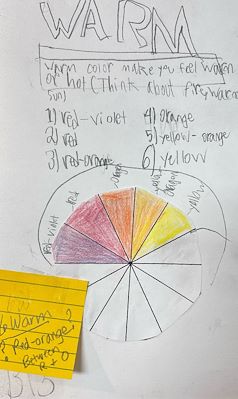 WARM
warm color make you feel warm
or hot (Think about fire, warm
sun)
1) red-violet 4) orange
2) red 5) yellow-orange
3) red-orange 6) yellow
red-violet
red
orange
yellow
orange
yellow
Warm ?
Red-orange
Between
R + O